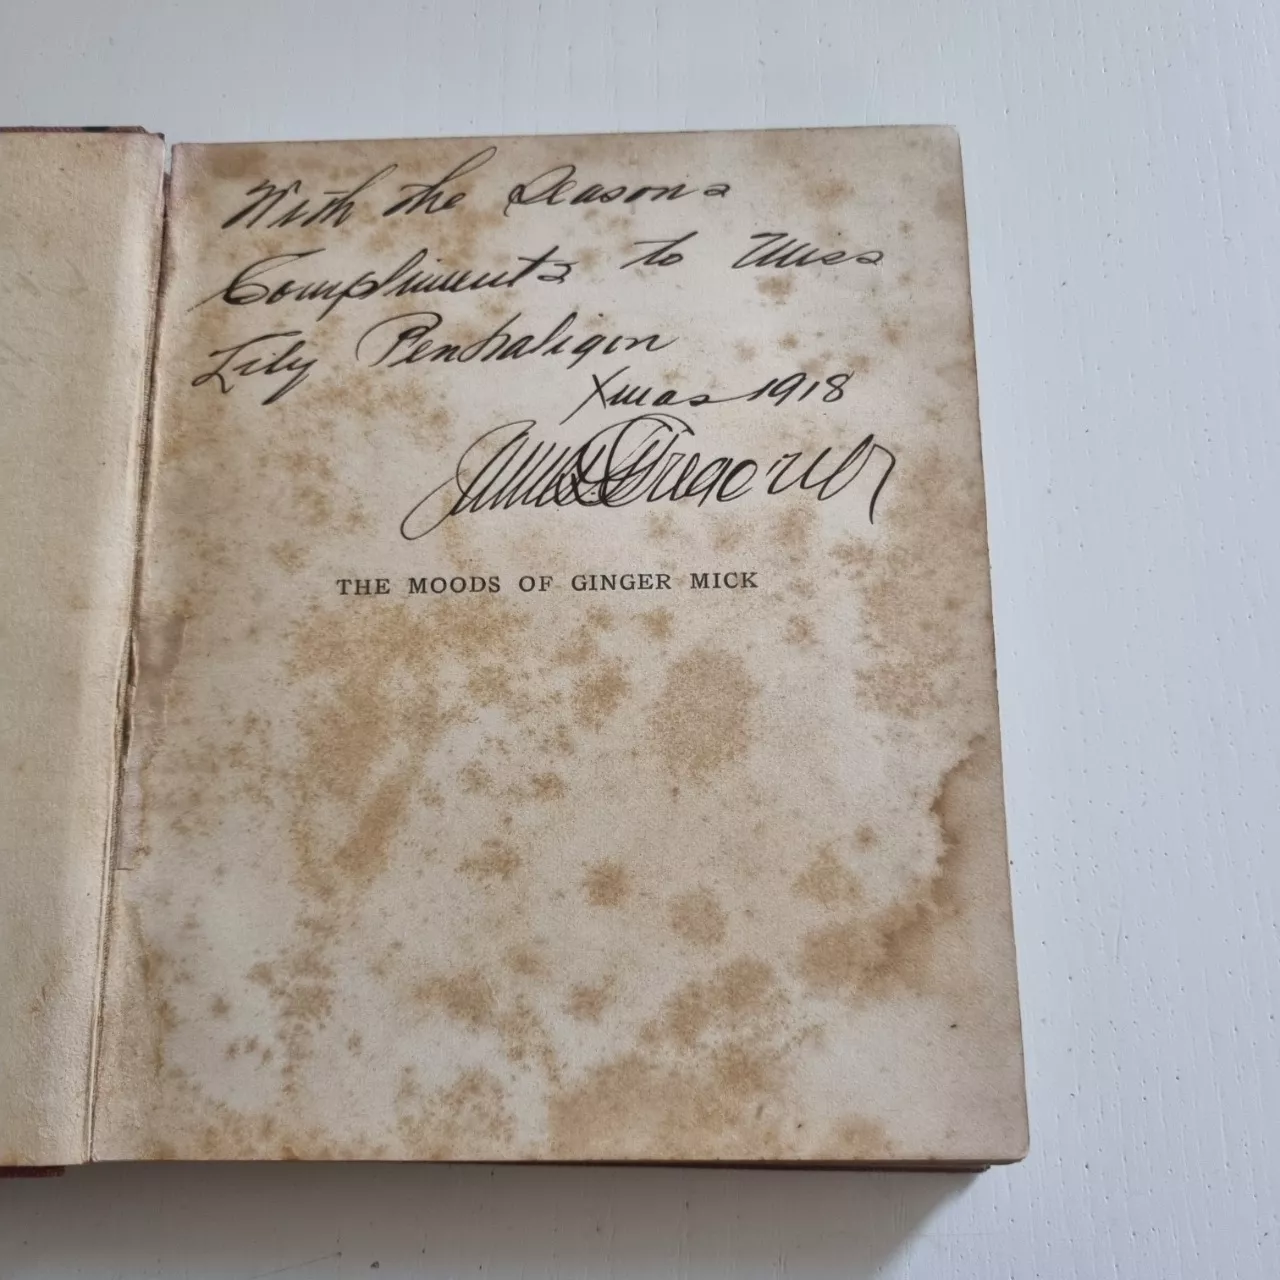 With the Seasons
Compliments to Miss
Lily Penhaligon
Xmas 1918
THE MOODS OF GINGER MICK